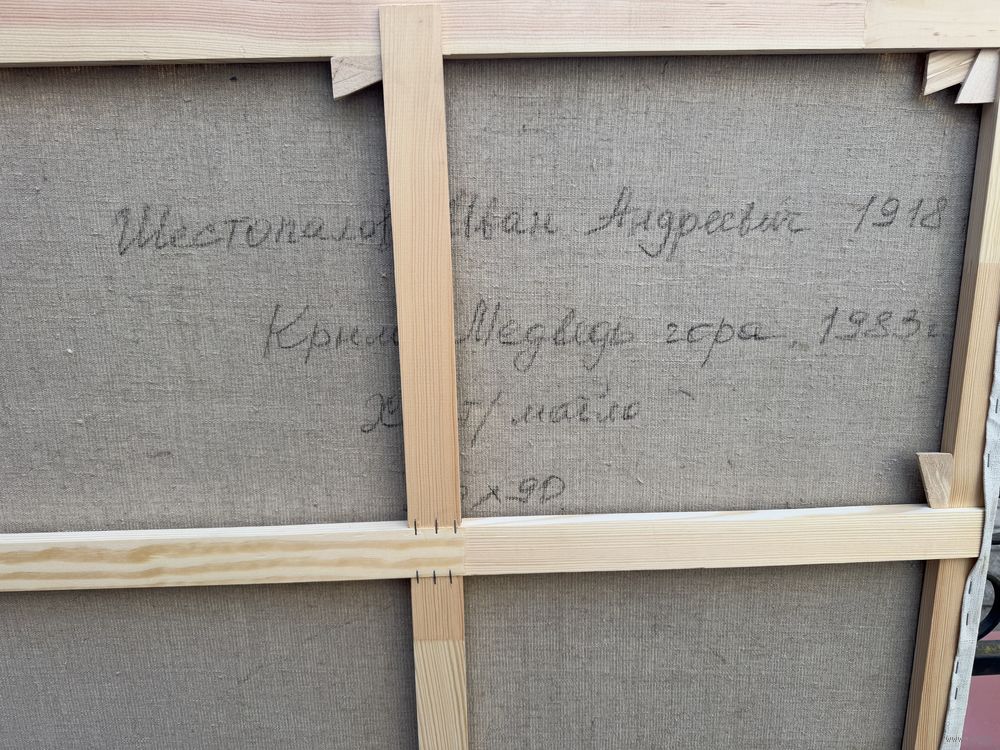 Шестопалов Иван Андреевич 1918
Крым Медведь гора, 1983г
х т/ масло
х 90